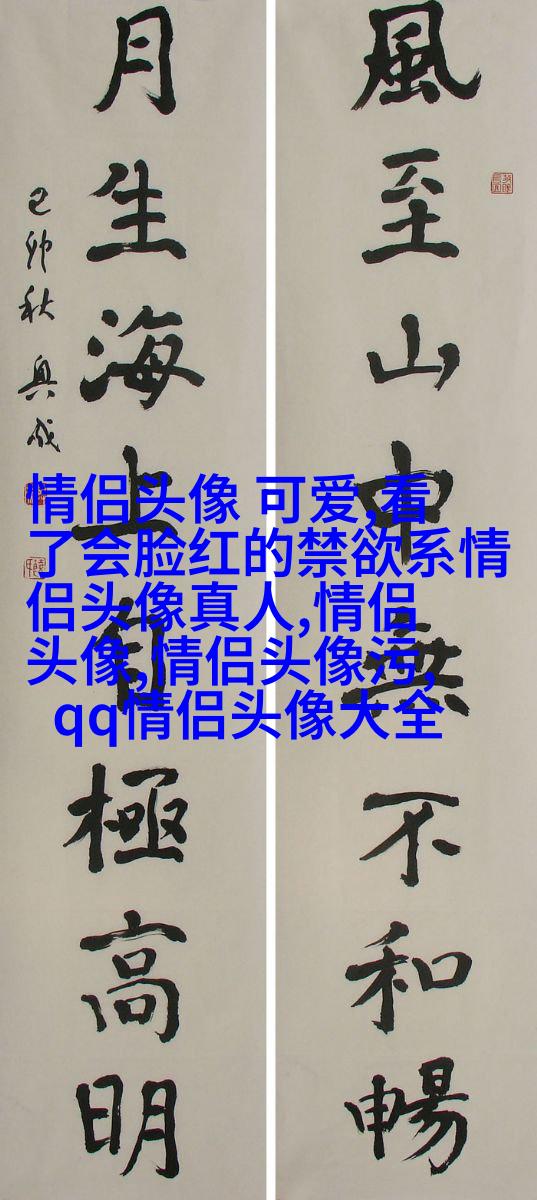 風至山中無不和暢
月生海上自極高明
己卯秋
情侣头像 可爱,看
了会脸红的禁欲系情
侣头像真人,情侣
头像,情侣头像污,
qq情侣头像大全